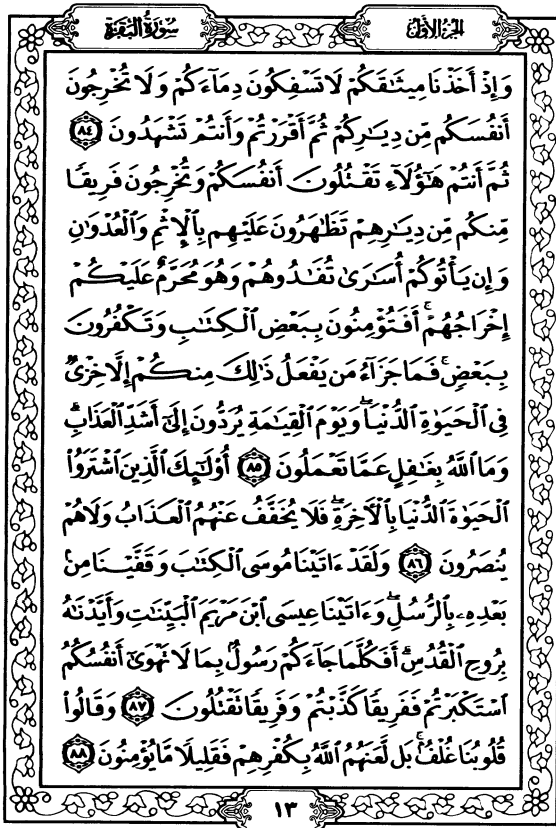 سورة البقرة
الجزء الأول
وَإِذْ أَخَذْنَا مِيثَٰقَكُمْ لَا تَسْفِكُونَ دِمَآءَكُمْ وَلَا تُخْرِجُونَ
أَنفُسَكُم مِّن دِيَٰرِكُمْ ثُمَّ أَقْرَرْتُمْ وَأَنتُمْ تَشْهَدُونَ ٨٤
ثُمَّ أَنتُمْ هَٰٓؤُلَآءِ تَقْتُلُونَ أَنفُسَكُمْ وَتُخْرِجُونَ فَرِيقًا
مِّنكُم مِّن دِيَٰرِهِمْ تَظَٰهَرُونَ عَلَيْهِم بِٱلْإِثْمِ وَٱلْعُدْوَٰنِ
وَإِن يَأْتُوكُمْ أُسَٰرَىٰ تُفَٰدُوهُمْ وَهُوَ مُحَرَّمٌ عَلَيْكُمْ
إِخْرَاجُهُمْ ۚ أَفَتُؤْمِنُونَ بِبَعْضِ ٱلْكِتَٰبِ وَتَكْفُرُونَ
بِبَعْضٍ ۚ فَمَا جَزَآءُ مَن يَفْعَلُ ذَٰلِكَ مِنكُمْ إِلَّا خِزْىٌ
فِى ٱلْحَيَوٰةِ ٱلدُّنْيَا ۖ وَيَوْمَ ٱلْقِيَٰمَةِ يُرَدُّونَ إِلَىٰٓ أَشَدِّ ٱلْعَذَابِ ۗ
وَمَا ٱللَّهُ بِغَٰفِلٍ عَمَّا تَعْمَلُونَ ٨٥ أُو۟لَٰٓئِكَ ٱلَّذِينَ ٱشْتَرَوُا۟
ٱلْحَيَوٰةَ ٱلدُّنْيَا بِٱلْءَاخِرَةِ ۖ فَلَا يُخَفَّفُ عَنْهُمُ ٱلْعَذَابُ وَلَا هُمْ
يُنصَرُونَ ٨٦ وَلَقَدْ ءَاتَيْنَا مُوسَى ٱلْكِتَٰبَ وَقَفَّيْنَا مِنۢ
بَعْدِهِۦ بِٱلرُّسُلِ ۖ وَءَاتَيْنَا عِيسَى ٱبْنَ مَرْيَمَ ٱلْبَيِّنَٰتِ وَأَيَّدْنَٰهُ
بِرُوحِ ٱلْقُدُسِ ۗ أَفَكُلَّمَا جَآءَكُمْ رَسُولٌۢ بِمَا لَا تَهْوَىٰٓ أَنفُسُكُمُ
ٱسْتَكْبَرْتُمْ فَفَرِيقًا كَذَّبْتُمْ وَفَرِيقًا تَقْتُلُونَ ٨٧ وَقَالُوا۟
قُلُوبُنَا غُلْفٌۢ ۚ بَل لَّعَنَهُمُ ٱللَّهُ بِكُفْرِهِمْ فَقَلِيلًا مَّا يُؤْمِنُونَ ٨٨
١٣